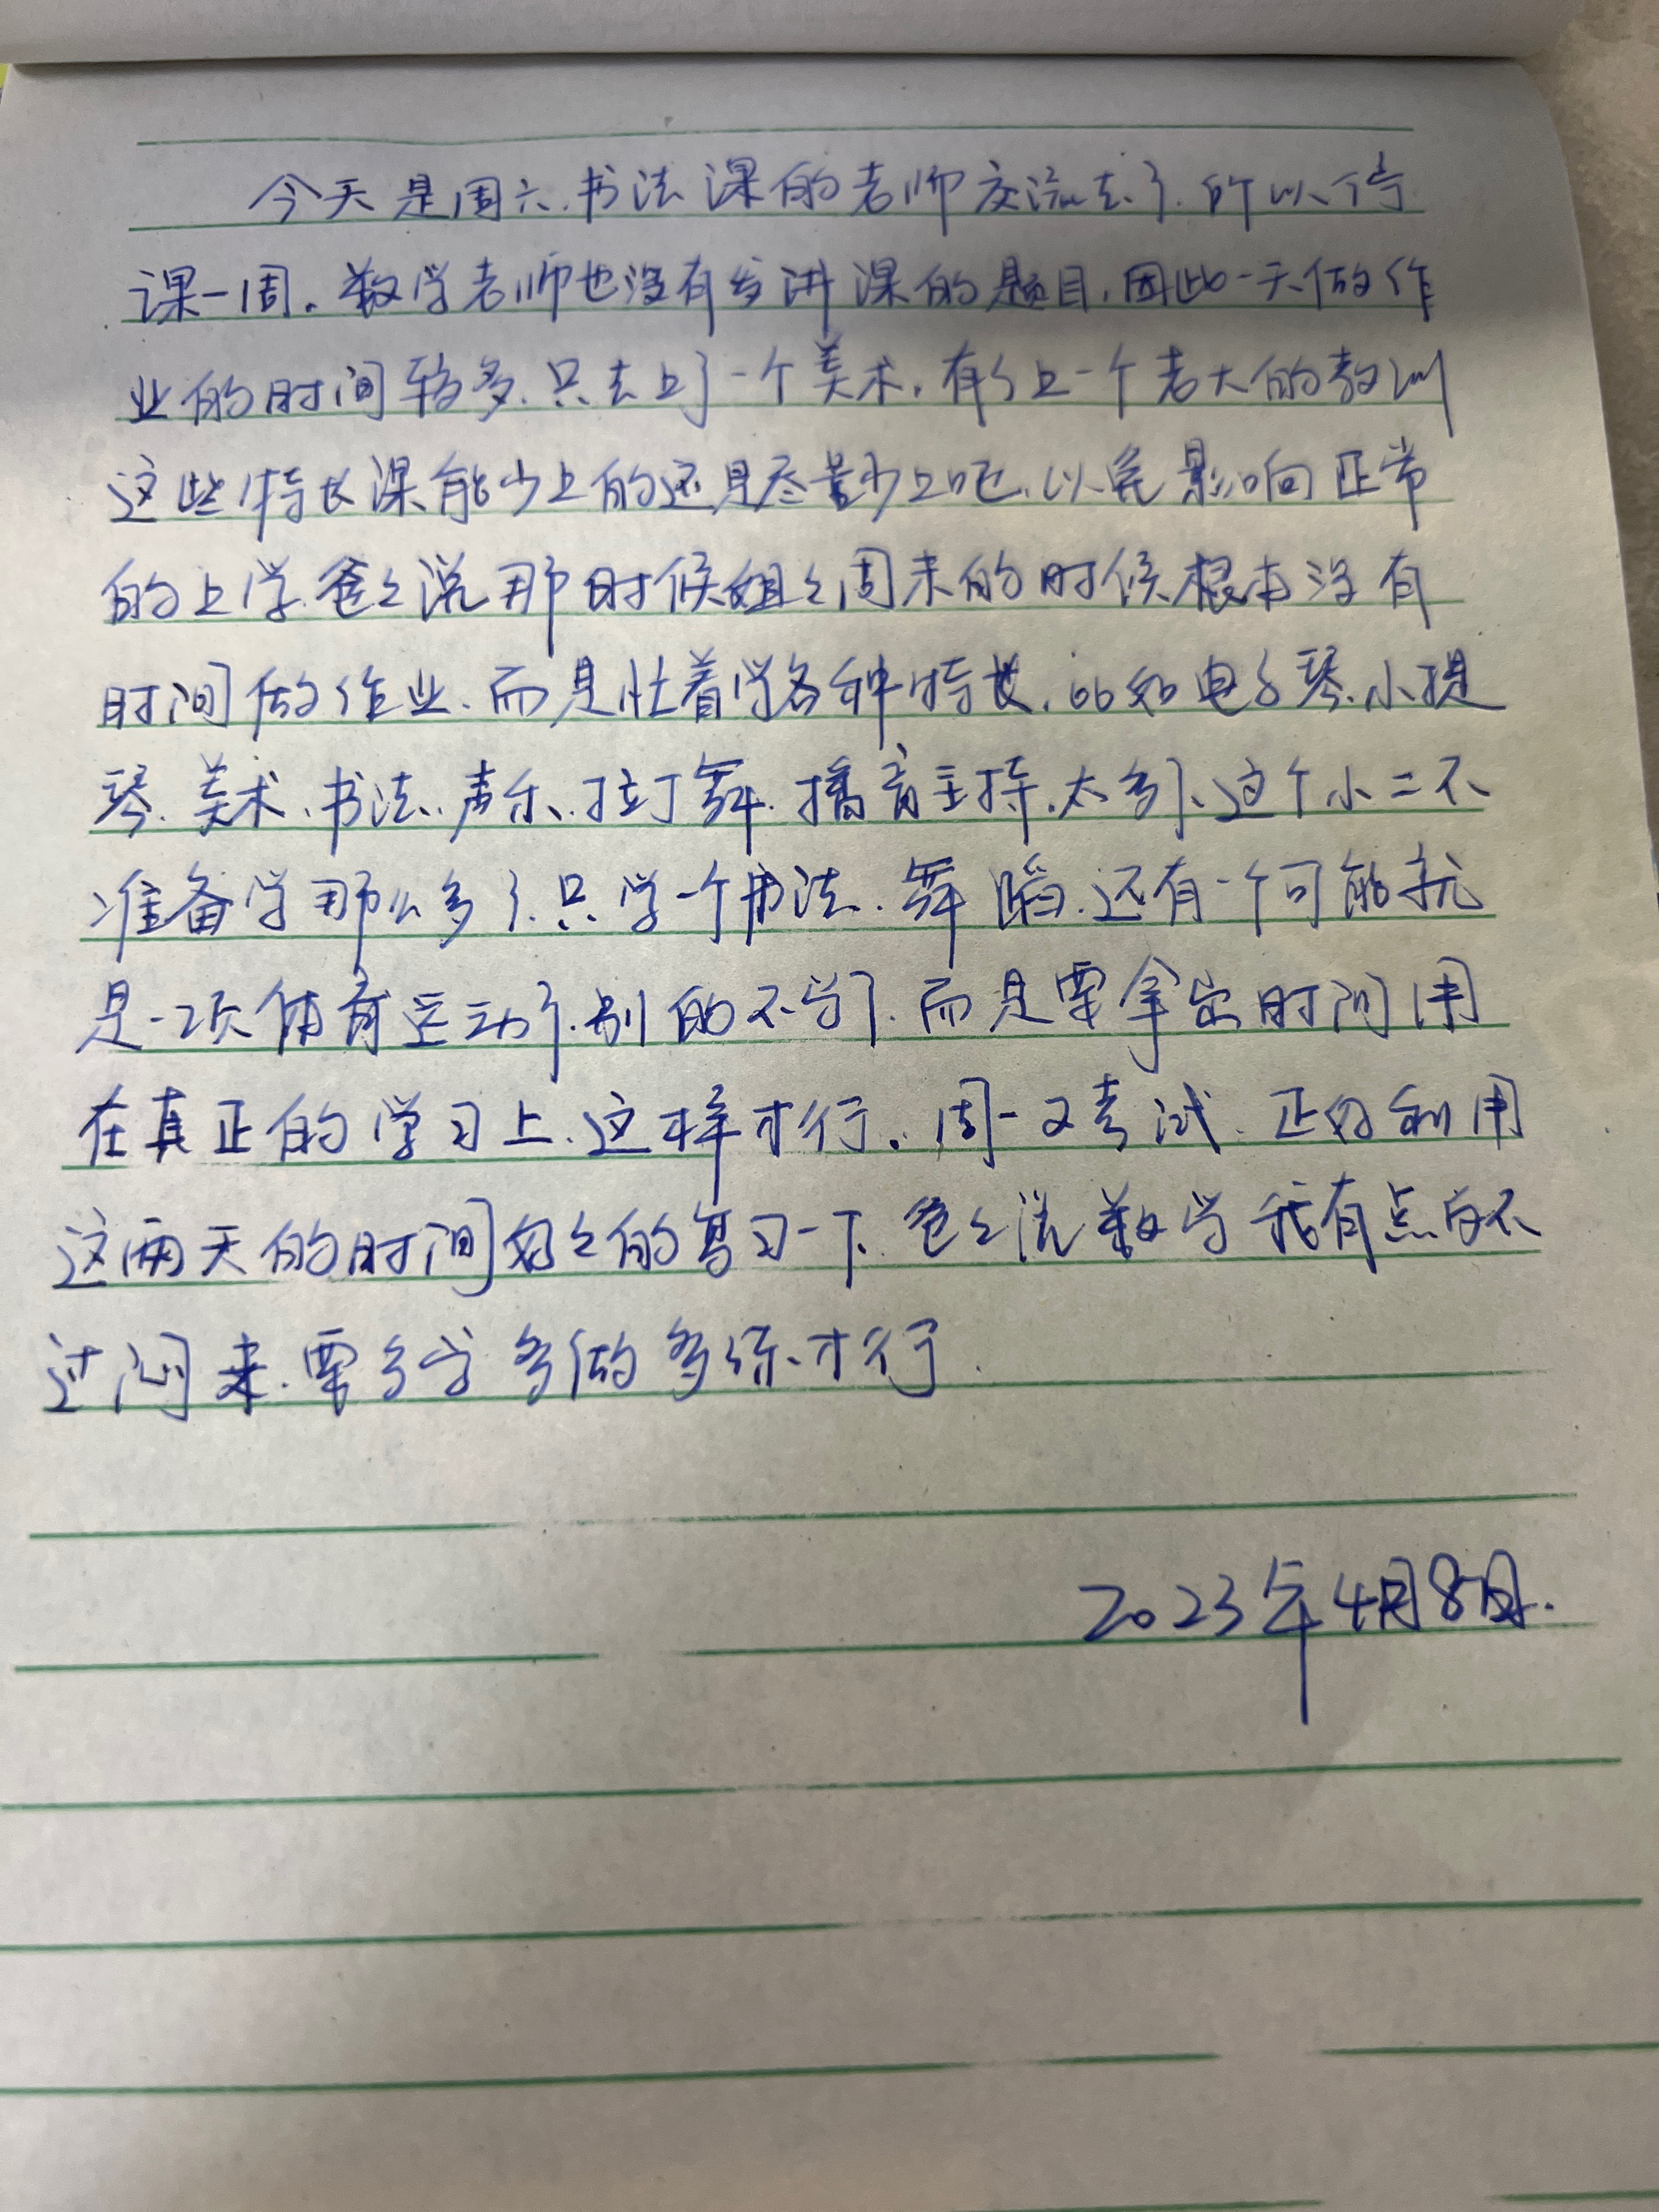 今天是周六.书法课的老师交流去了.所以停
课一周。数学老师也没有发讲课的题目.因此一天做作
业的时间较多.只去上了一个美术.有了上一个老大的教训
这些特长课能少上的还是尽量少上吧.以免影响正常
的上学.爸々说那时候姐々周末的时候根本没有
时间做作业.而是忙着学各种特长.比如电子琴.小提
琴.美术.书法.声乐.拉丁舞.播音主持.太多了.这个小二不
准备学那么多了.只学一个书法.舞蹈.还有一个可能就
是一项体育运动了.别的不学了.而是要拿出时间用
在真正的学习上.这样才行。周一又考试.正好利用
这两天的时间好々的复习一下.爸々说数学我有点转不
过闷来.要多学多做多练.才行.
2023年4月8日.